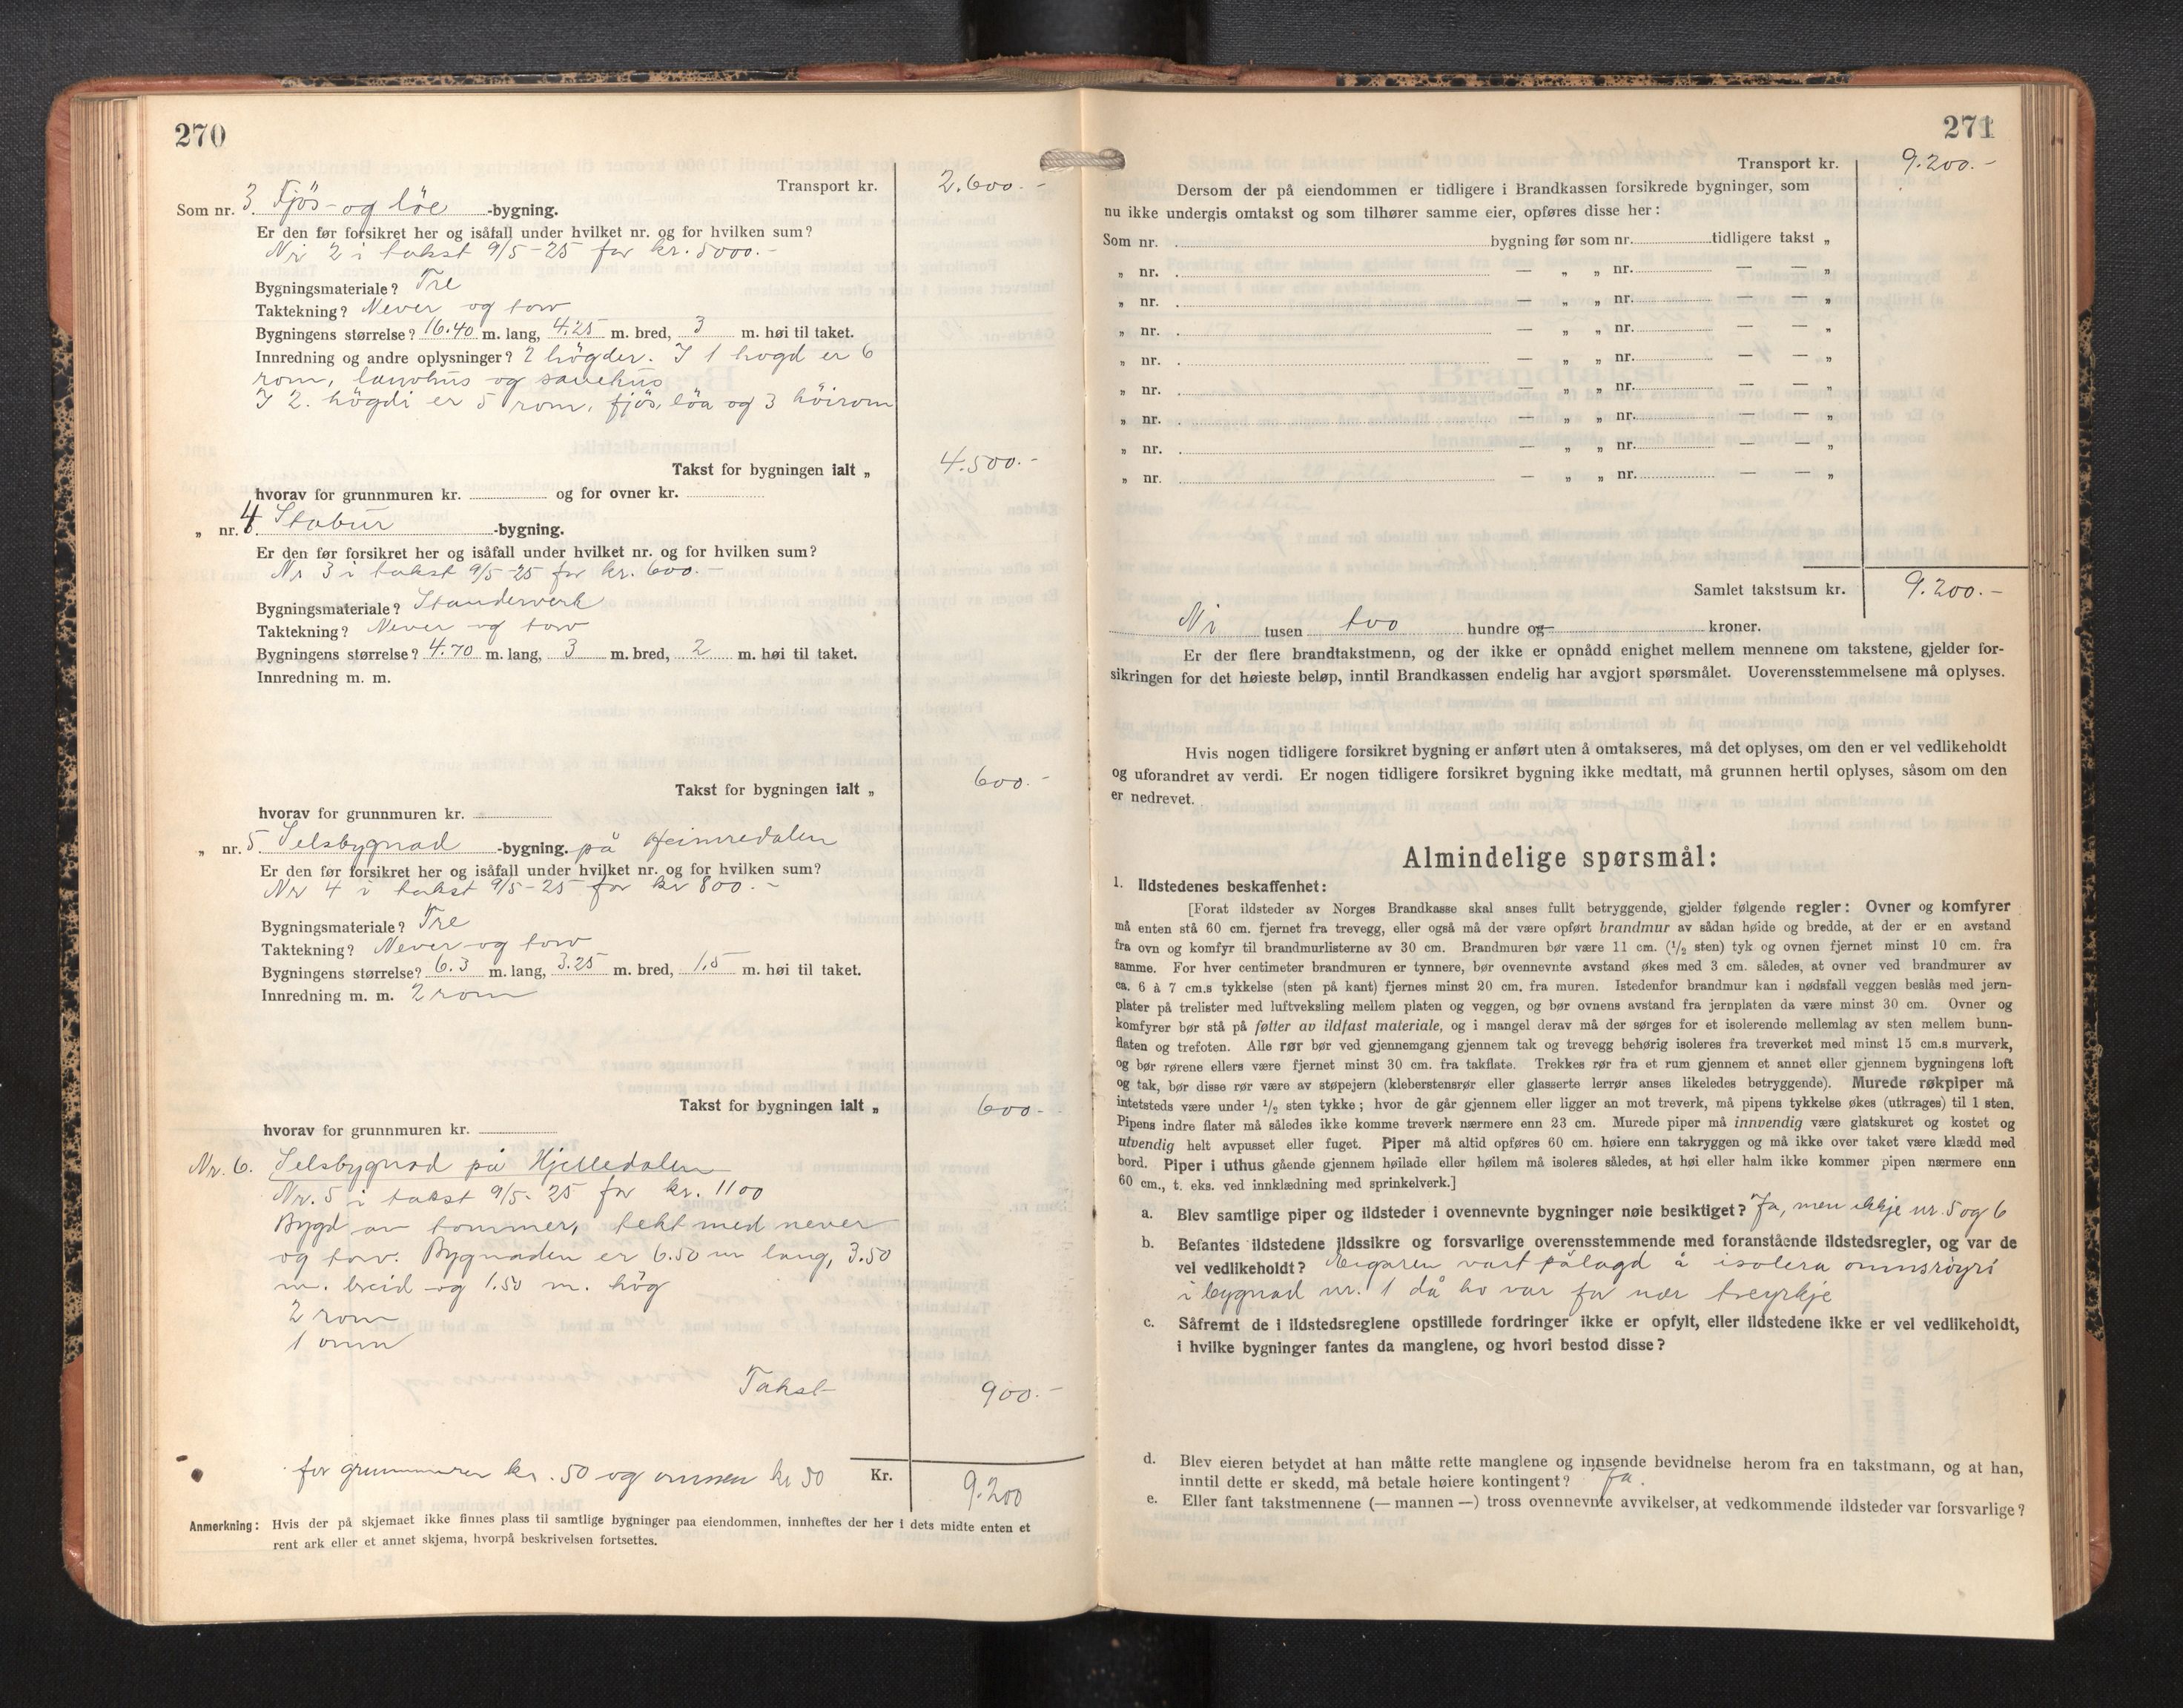 270
Transport kr. 2.600.-
Som nr. 3. Fjös- og löe -bygning.
Er den før forsikret her og isåfall under hvilket nr. og for hvilken sum?
Nr 2 i takst 9/5-25 for kr. 5000.-
Bygningsmateriale? Tre
Taktekning? Never og torv
Bygningens størrelse? 16.40 m. lang, 4.25 m. bred, 3 m. høi til taket.
Innredning og andre oplysninger? 2 högder. I 1 hogd er 6
rom, og sauehus
I 2. högdi er 5 rom, fjös, löa og 3 höirom
Takst for bygningen ialt „ 4.500.-
hvorav for grunnmuren kr. og for ovner kr.
„ nr. 4 Stabur -bygning.
Er den før forsikret her og isåfall under hvilket nr. og for hvilken sum?
Nr 3 i takst 9/5-25 for kr. 600.-
Bygningsmateriale? Standerverk
Taktekning? Never og torv
Bygningens størrelse? 4.70 m. lang, 3 m. bred, 2 m. høi til taket.
Innredning m. m.
Takst for bygningen ialt „ 600.-
hvorav for grunnmuren kr.
„ nr. 5. Selsbygnad -bygning. på Heimredalen
Er den før forsikret her og isåfall under hvilket nr. og for hvilken sum?
Nr 4 i takst 9/5-25 for kr 800.-
Bygningsmateriale? Tre
Taktekning? Never og torv
Bygningens størrelse? 6.3 m. lang, 3.25 m. bred, 1,5 m. høi til taket.
Innredning m. m. 2 rom
Takst for bygningen ialt „ 600-
hvorav for grunnmuren kr.
Nr. 6. Selsbygnad på Hjelledalen
Nr. 5 i takst 9/5-25 for kr. 1100
Bygd av tømmer, tekt med never
og torv. Bygnaden er 6.50 m lang, 3.50
m. breid og 1.50 m. hög
2 rom
1 omn
Takst 900.-
for grunnmuren kr. 50 og omnen kr 50 Kr. 9.200
Anmerkning: Hvis der på skjemaet ikke finnes plass til samtlige bygninger paa eiendommen, innheftes der her i dets midte enten et
rent ark eller et annet skjema, hvorpå beskrivelsen fortsettes.
271
Transport kr. 9.200.-
Dersom der på eiendommen er tidligere i Brandkassen forsikrede bygninger, som
nu ikke undergis omtakst og som tilhører samme eier, opføres disse her:
Som nr. bygning før som nr. tidligere takst „
„ nr. — „ „ nr. — — „
„ nr. — „ „ nr. — — „
„ nr. — „ „ nr. — — „
„ nr. — „ „ nr. — — „
„ nr. — „ „ nr. — — „
„ nr. — „ „ nr. — — „
„ nr. — „ „ nr. — — „
„ nr. — „ „ nr. — — „
Samlet takstsum kr. 9.200.-
Ni tusen two hundre og kroner.
Er der flere brandtakstmenn, og der ikke er opnådd enighet mellem mennene om takstene, gjelder for-
sikringen for det høieste beløp, inntil Brandkassen endelig har avgjort spørsmålet. Uoverensstemmelsene må oplyses.
Hvis nogen tidligere forsikret bygning er anført uten å omtakseres, må det oplyses, om den er vel vedlikeholdt
og uforandret av verdi. Er nogen tidligere forsikret bygning ikke medtatt, må grunnen hertil oplyses, såsom om den
er nedrevet.
Almindelige spørsmål:
1. Ildstedenes beskaffenhet:
[Forat ildsteder av Norges Brandkasse skal anses fullt betryggende, gjelder følgende regler: Ovner og komfyrer
må enten stå 60 cm. fjernet fra trevegg, eller også må der være opført brandmur av sådan høide og bredde, at der er en avstand
fra ovn og komfyr til brandmurlisterne av 30 cm. Brandmuren bør være 11 cm. (1/2 sten) tyk og ovnen fjernet minst 10 cm. fra
samme. For hver centimeter brandmuren er tynnere, bør ovennevnte avstand økes med 3 cm. således, at ovner ved brandmurer av
ca. 6 à 7 cm.s tykkelse (sten på kant) fjernes minst 20 cm. fra muren. Istedenfor brandmur kan i nødsfall veggen beslås med jern-
plater på trelister med luftveksling mellem platen og veggen, og bør ovnens avstand fra jernplaten da være minst 30 cm. Ovner og
komfyrer bør stå på føtter av ildfast materiale, og i mangel derav må der sørges for et isolerende mellemlag av sten mellem bunn-
flaten og trefoten. Alle rør bør ved gjennemgang gjennem tak og trevegg behørig isoleres fra treverket med minst 15 cm.s murverk,
og bør rørene ellers være fjernet minst 30 cm. fra takflate. Trekkes rør fra et rum gjennem et annet eller gjennem bygningens loft
og tak, bør disse rør være av støpejern (kleberstensrør eller glasserte lerrør anses likeledes betryggende). Murede røkpiper må
intetsteds være under 1/2 sten tykke; hvor de går gjennem eller ligger an mot treverk, må pipens tykkelse økes (utkrages) til 1 sten.
Pipens indre flater må således ikke komme treverk nærmere enn 23 cm. Murede piper må innvendig være glatskuret og kostet og
utvendig helt avpusset eller fuget. Piper må altid opføres 60 cm. høiere enn takryggen og må ikke over taket være klædd med
bord. Piper i uthus gående gjennem høilade eller høilem må isoleres således, at høi eller halm ikke kommer pipen nærmere enn
60 cm., t. eks. ved innklædning med sprinkelverk.]
a. Blev samtlige piper og ildsteder i ovennevnte bygninger nøie besiktiget? Ja, men ikkje nr. 5 og 6
b. Befantes ildstedene ildssikre og forsvarlige overensstemmende med foranstående ildstedsregler, og var de
vel vedlikeholdt? Eigaren vart pålagd å isolera omnsröyri
i bygnad nr. 1 då ho var for nær treyrkje
c. Såfremt de i ildstedsreglene opstillede fordringer ikke er opfylt, eller ildstedene ikke er vel vedlikeholdt,
i hvilke bygninger fantes da manglene, og hvori bestod disse?
d. Blev eieren betydet at han måtte rette manglene og innsende bevidnelse herom fra en takstmann, og at han,
inntil dette er skedd, må betale høiere kontingent? Ja.
e. Eller fant takstmennene (— mannen —) tross ovennevnte avvikelser, at vedkommende ildsteder var forsvarlige?